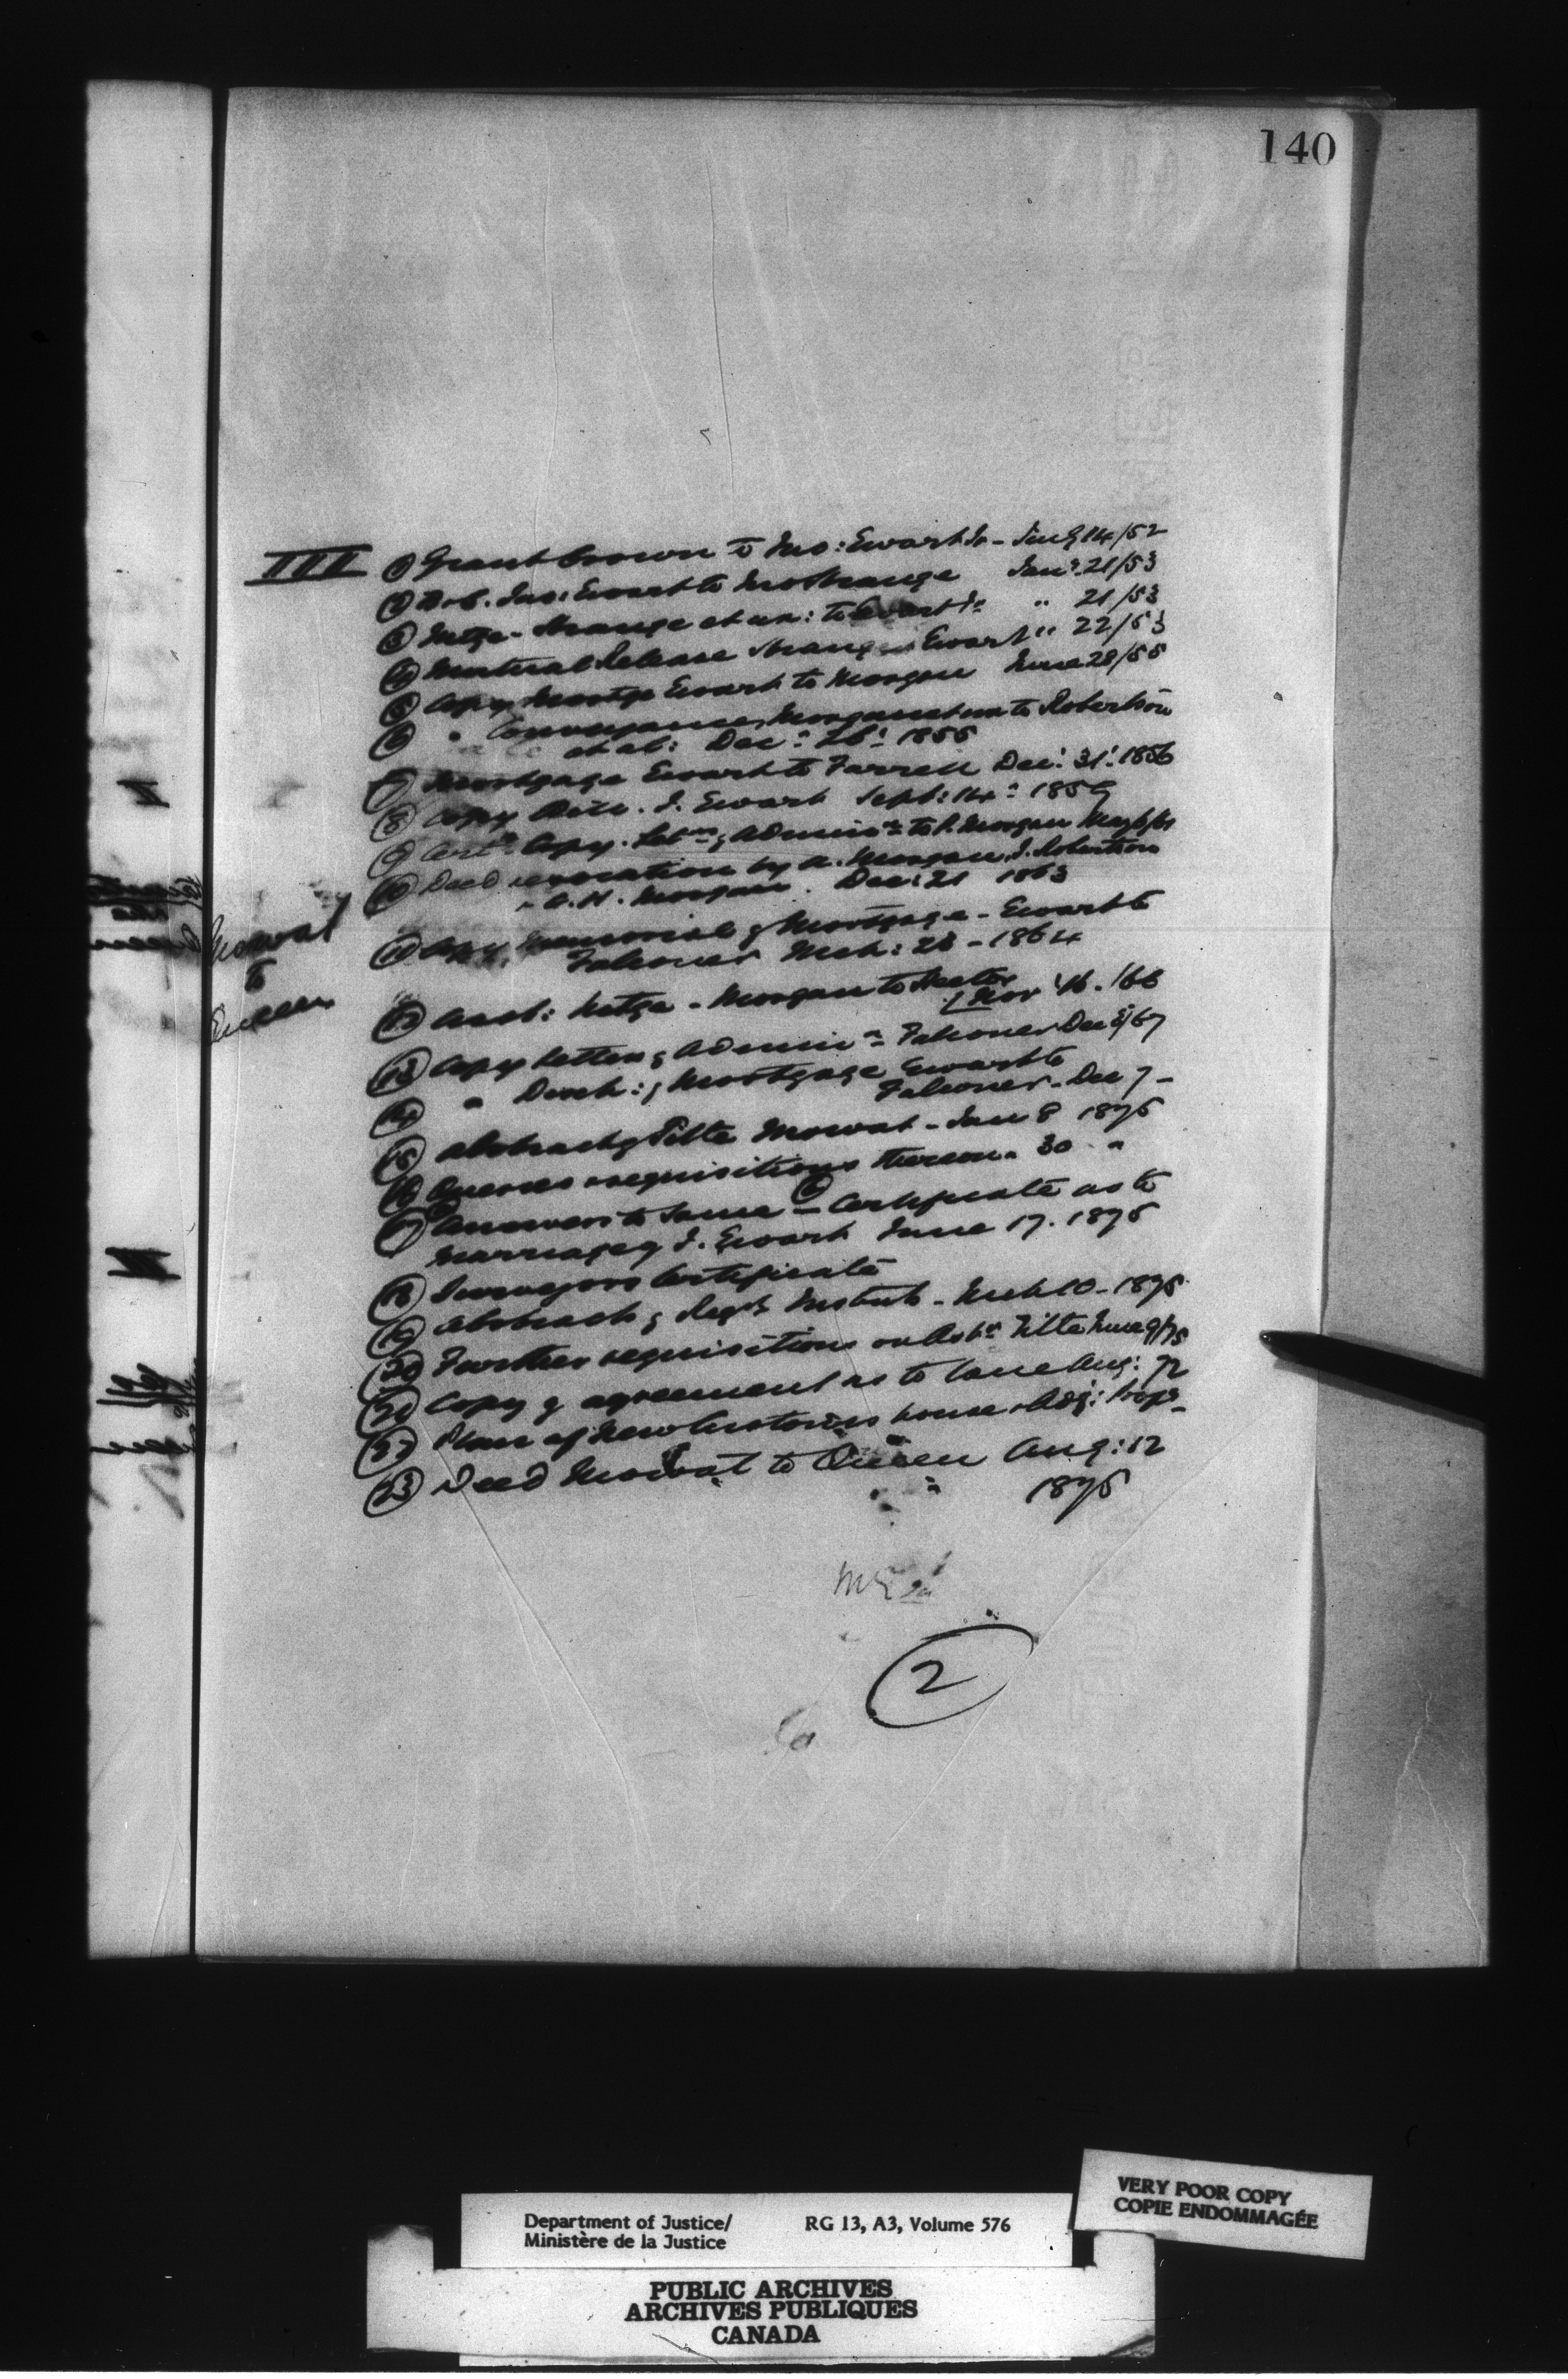 140
III ① Grant Crown to Jno: Ewart Jr - Aug 14/52
② B & S. Jno: Ewart to Mr Strange Jany 21/53
③ Mtge - Strange et ux: to Ewart Jr " 21/53
④ Mutual Release Strange Ewart " 22/53
⑤ Copy Mortge Ewart to Morgan June 28/55
⑥ " Conveyance, Morgan et ux to Robertson
et al: Decr 26: 1855
⑦ Mortgage Ewart to Farrell Dec: 31: 1856
⑧ Copy Will. J. Ewart Sept: 14: 1859
⑨ Certd Copy. Letrs of Adminn to P. Morgan May
⑩ Deed revocation by A. Morgan, J. Robertson
A. H. Morgan. Dec: 21 1863
⑪ Copy Memorial of Mortgage - Ewart to
Falconer Mch: 28 - 1864
Mowat
to
Queen
⑫ Asst: Mtge - Morgan to
Nov 16. /66
⑬ Copy Letters of Adminn Falconer Dec 5/67
⑭ " Disch: of Mortgage Ewart to
Falconer - Dec 7 -
⑮ Abstract of Title Mowat - Jan 8 1875
⑯ Queries & requisitions thereon " 30 "
⑰ Answers to same - Certificate as to
Marriage of J. Ewart June 17. 1875
⑱ Surveyors Certificate
⑲ Abstract of Regd Instmts - Mch 10 - 1875
⑳ Further requisitions on Abst Title June 9/75
㉑ Copy of agreement as to lane Aug: 72
㉒ Plan of New Customs house & Adj: Propy -
㉓ Deed Mowat to Queen Aug: 12
1875
2
Department of Justice/
Ministère de la Justice
RG 13, A3, Volume 576
VERY POOR COPY
COPIE ENDOMMAGÉE
PUBLIC ARCHIVES
ARCHIVES PUBLIQUES
CANADA